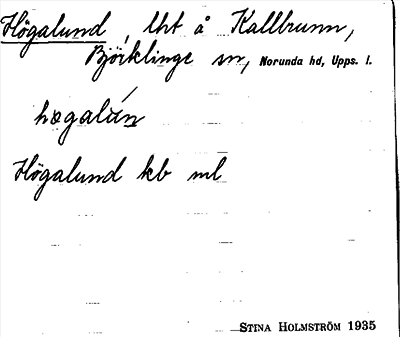 Högalund, lht å Kallbrunn,
Björklinge sn, Norunda hd, Upps. l.
hægalún
Högalund kb ml
STINA HOLMSTRÖM 1935